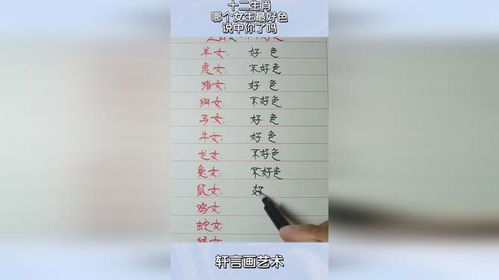 十二生肖
哪个女生最好色
说中你了吗
羊女： 好 色
虎女： 不好色
猪女： 好 色
狗女： 不好色
马女： 好 色
牛女： 好 色
龙女： 不好色
兔女： 不好色
鼠女： 好
鸡女：
蛇女：
轩言画艺术